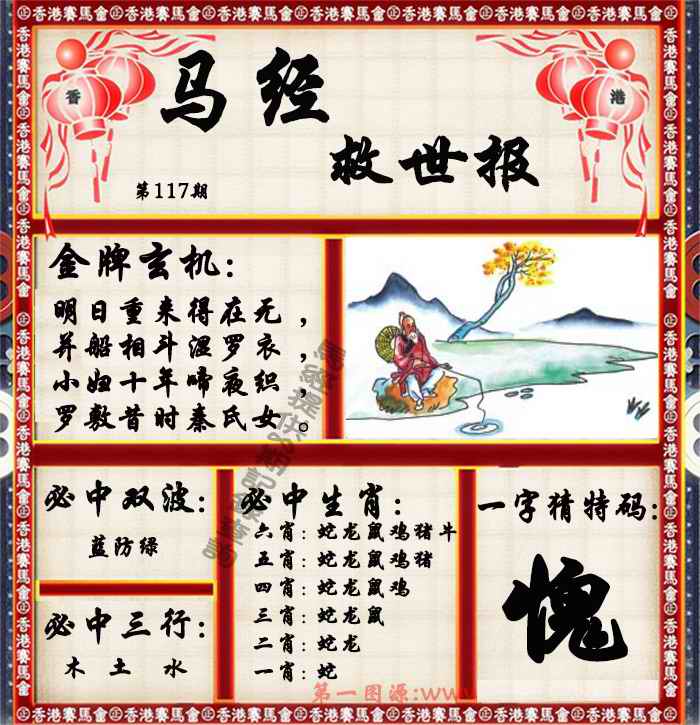 香港賽馬會
香 港
马经
救世报
第117期
金牌玄机:
明日重来得在无，
并船相斗湿罗衣，
小妇十年啼夜织，
罗敷昔时秦氏女。
必中双波:
蓝防绿
必中三行:
木 土 水
必中生肖:
六肖: 蛇龙鼠鸡猪牛
五肖: 蛇龙鼠鸡猪
四肖: 蛇龙鼠鸡
三肖: 蛇龙鼠
二肖: 蛇龙
一肖: 蛇
一字猜特码:
愧
第一图源:www